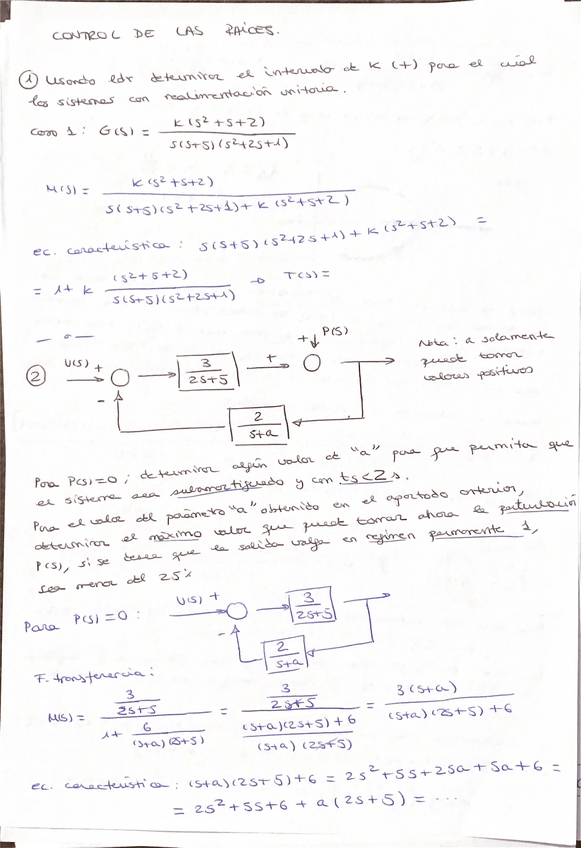 CONTROL DE LAS RAÍCES.
① Usando ldr determinar el intervalo de K (+) para el cual
los sistemas con realimentación unitaria.
Caso 1: G(s) = K(s²+s+2) / s(s+5)(s²+2s+1)
M(s) = K(s²+s+2) / s(s+5)(s²+2s+1)+K(s²+s+2)
ec. característica: s(s+5)(s²+2s+1)+K(s²+s+2) =
= 1+ K (s²+s+2) / s(s+5)(s²+2s+1) → T(s)=
— o —
②
U(s) +
-
3 / 2s+5
+
+ P(s)
2 / s+a
Nota: a solamente
puede tomar
valores positivos
Para P(s)=0; determinar algún valor de "a" para que permita que
el sistema sea subamortiguado y con ts<2s.
Para el valor del parámetro "a" obtenido en el apartado anterior,
determinar el máximo valor que puede tomar ahora la perturbación
P(s), si se desea que la salida valga en régimen permanente 1,
sea menor del 25%
Para P(s)=0:
U(s) +
-
3 / 2s+5
2 / s+a
F. transferencia:
M(s) = (3 / 2s+5) / (1+ 6 / (s+a)(2s+5)) = (3 / 2s+5) / ((s+a)(2s+5)+6 / (s+a)(2s+5)) = 3(s+a) / (s+a)(2s+5)+6
ec. característica: (s+a)(2s+5)+6 = 2s²+5s+2sa+5a+6 =
= 2s²+5s+6 + a(2s+5) = ...